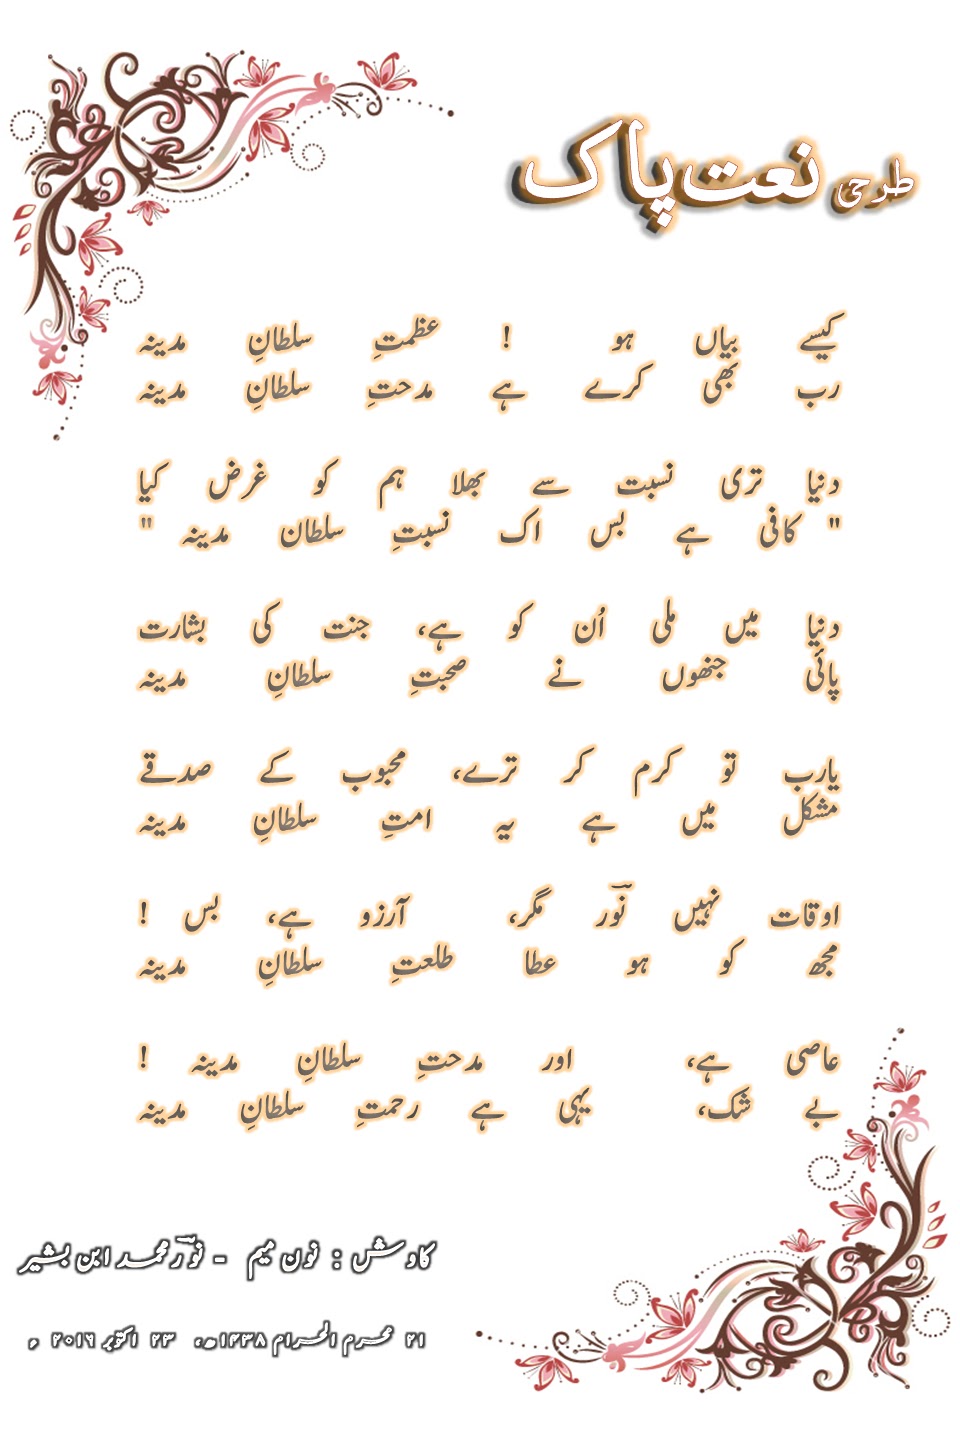 طرحی نعت پاک
کیسے بیاں ہو ! عظمتِ سلطانِ مدینہ
رب بھی کرے ہے مدحتِ سلطانِ مدینہ
دنیا تری نسبت سے بھلا ہم کو غرض کیا
" کافی ہے بس اک نسبتِ سلطان مدینہ "
دنیا میں ملی اُن کو ہے، جنت کی بشارت
پائی جنھوں نے صحبتِ سلطانِ مدینہ
یارب تو کرم کر ترے، محبوب کے صدقے
مشکل میں ہے یہ امتِ سلطانِ مدینہ
اوقات نہیں نورؔ مگر، آرزو ہے، بس !
مجھ کو ہو عطا طلعتِ سلطانِ مدینہ
عاصی ہے، اور مدحتِ سلطانِ مدینہ !
بے شک، یہی ہے رحمتِ سلطانِ مدینہ
کاوش : نون میم - نورؔ محمد ابن بشیر
۲۱ محرم الحرام ۱۴۳۸ھ، ۲۳ اکتوبر ۲۰۱۶ ء